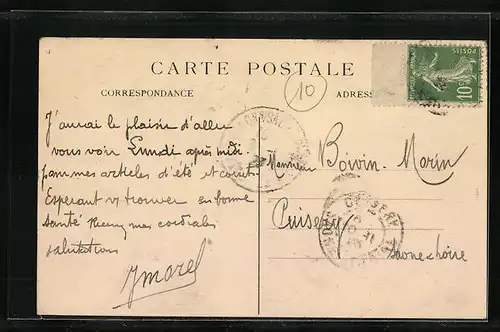 CARTE POSTALE
CORRESPONDANCE
ADRES
10
10c
J'aurai le plaisir d'aller
vous voir Lundi après midi
pour mes articles d'été et
Esperant vs trouver en bonne
santé mes cordiales
salutations
Monsieur Bovin-Morin
Cuisery
Saone & Loire